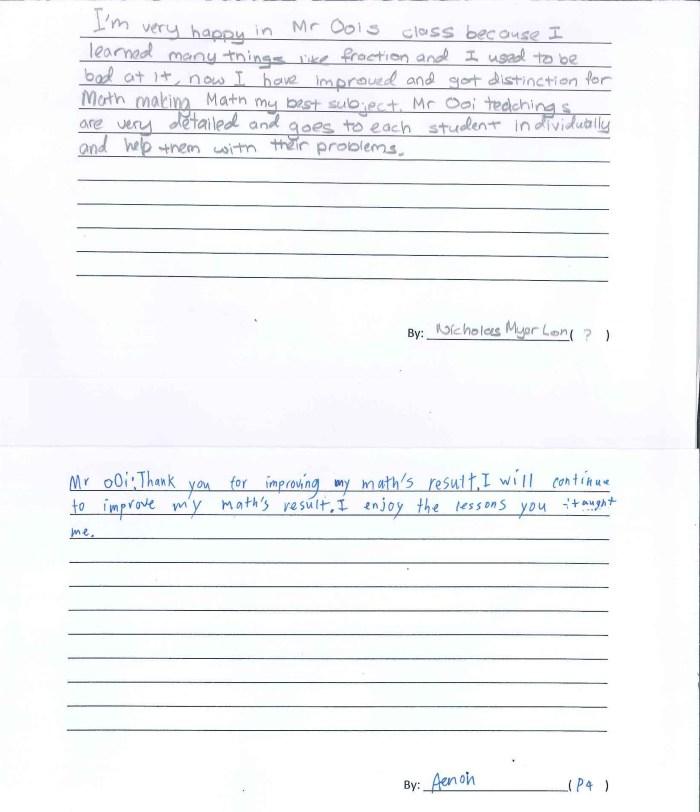 I'm very happy in Mr Oois class because I
learned many things like fraction and I used to be
bad at it, now I have improved and got distinction for
Math making Math my best subject. Mr Ooi teachings
are very detailed and goes to each student individually
and help them with their problems.
By: Nicholas Myer Lon ( ? )
Mr oOi: Thank you for improving my math's result. I will continue
to improve my math's result. I enjoy the lessons you taught
me.
By: Aenoh (P4 )